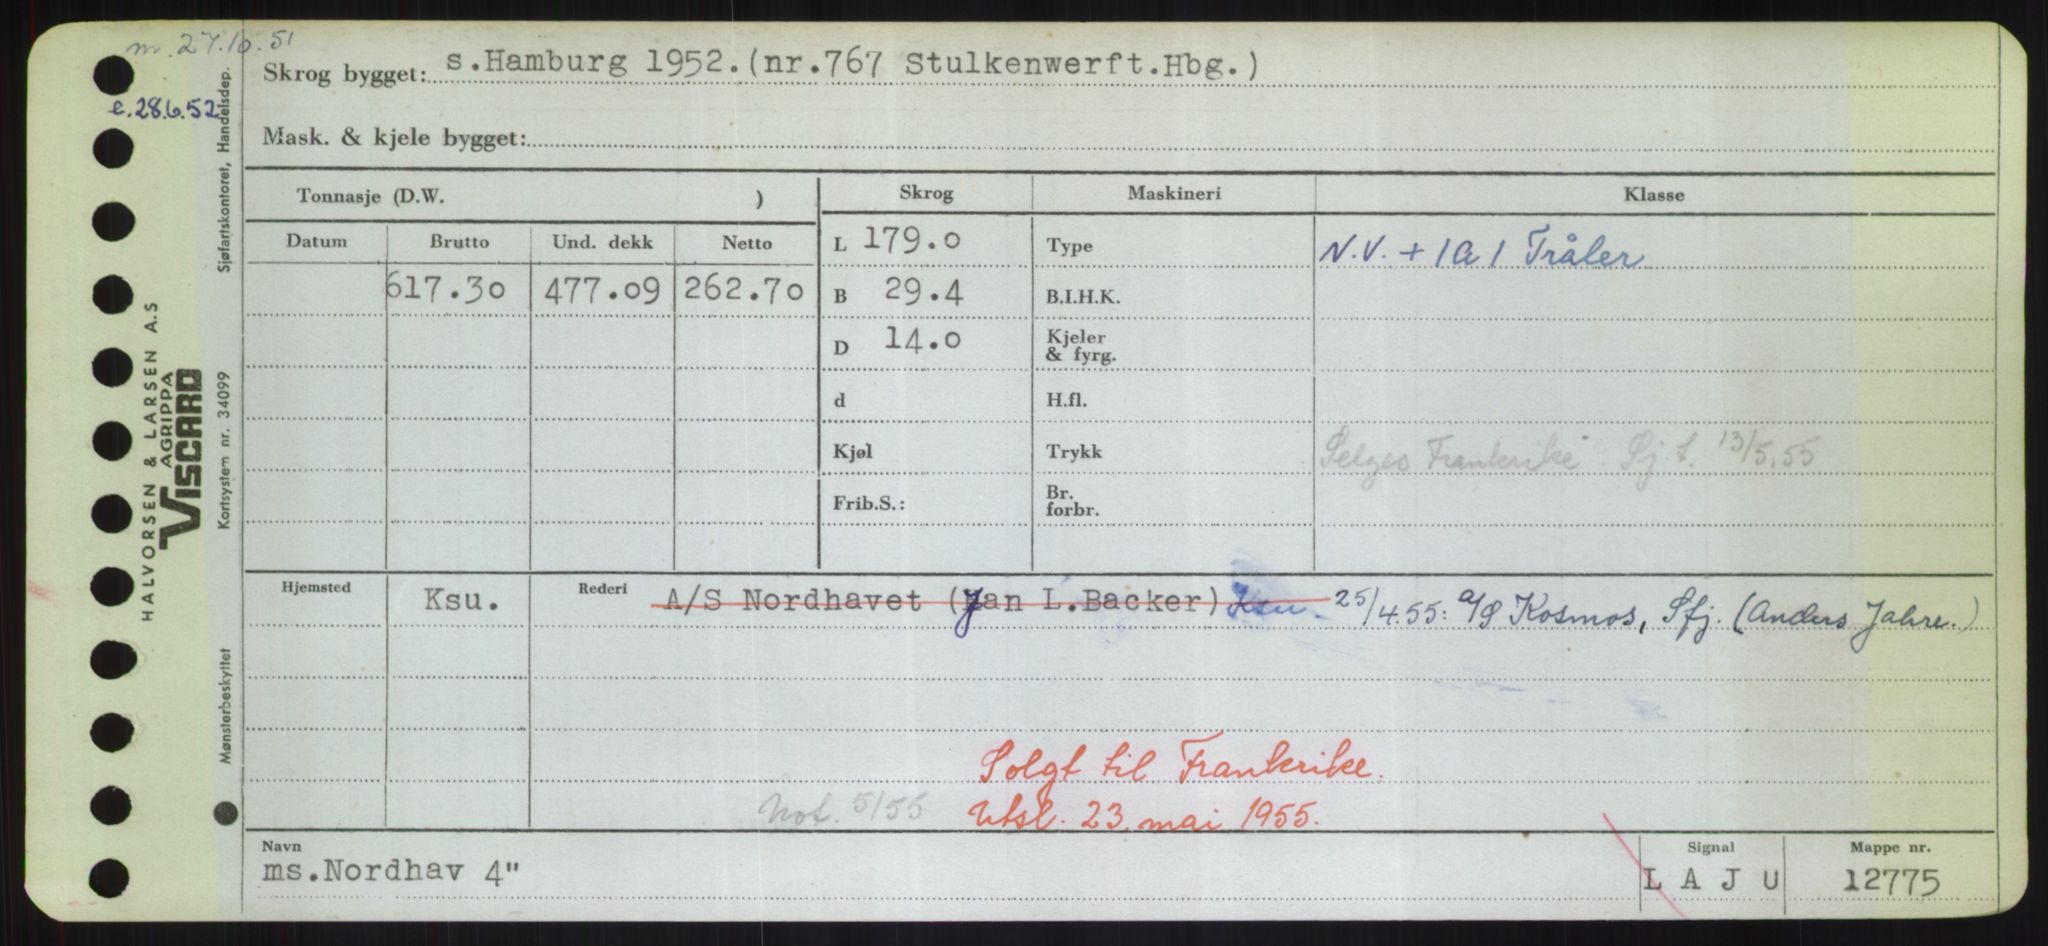 nr. 27.10.51
e.28.6.52
Skrog bygget: s.Hamburg 1952.(nr.767 Stulkenwerft.Hbg.)
Mask. & kjele bygget:
HALVORSEN & LARSEN A.S
AGRIPPA
VISCARD
Sjøfartskontoret, Handelsdep.
Kortsystem nr. 34099
Mønsterbeskyttet
Tonnasje (D.W. ) Skrog Maskineri Klasse
Datum Brutto Und. dekk Netto L 179.0 Type N.V. + 1A1 Tråler
617.30 477.09 262.70 B 29.4 B.I.H.K.
D 14.0 Kjeler & fyrg.
d H.fl.
Kjøl Trykk Selges Frankrike Sj.t. 13/5.55
Frib.S.: Br. forbr.
Hjemsted Ksu. Rederi A/S Nordhavet (Jan L.Backer) Ksu. 25/4.55: A/S Kosmos, Sfj. (Anders Jahre.)
Solgt til Frankrike.
Not. 5/55 Utsl. 23. mai 1955.
Navn Signal Mappe nr.
ms.Nordhav 4" L A J U 12775